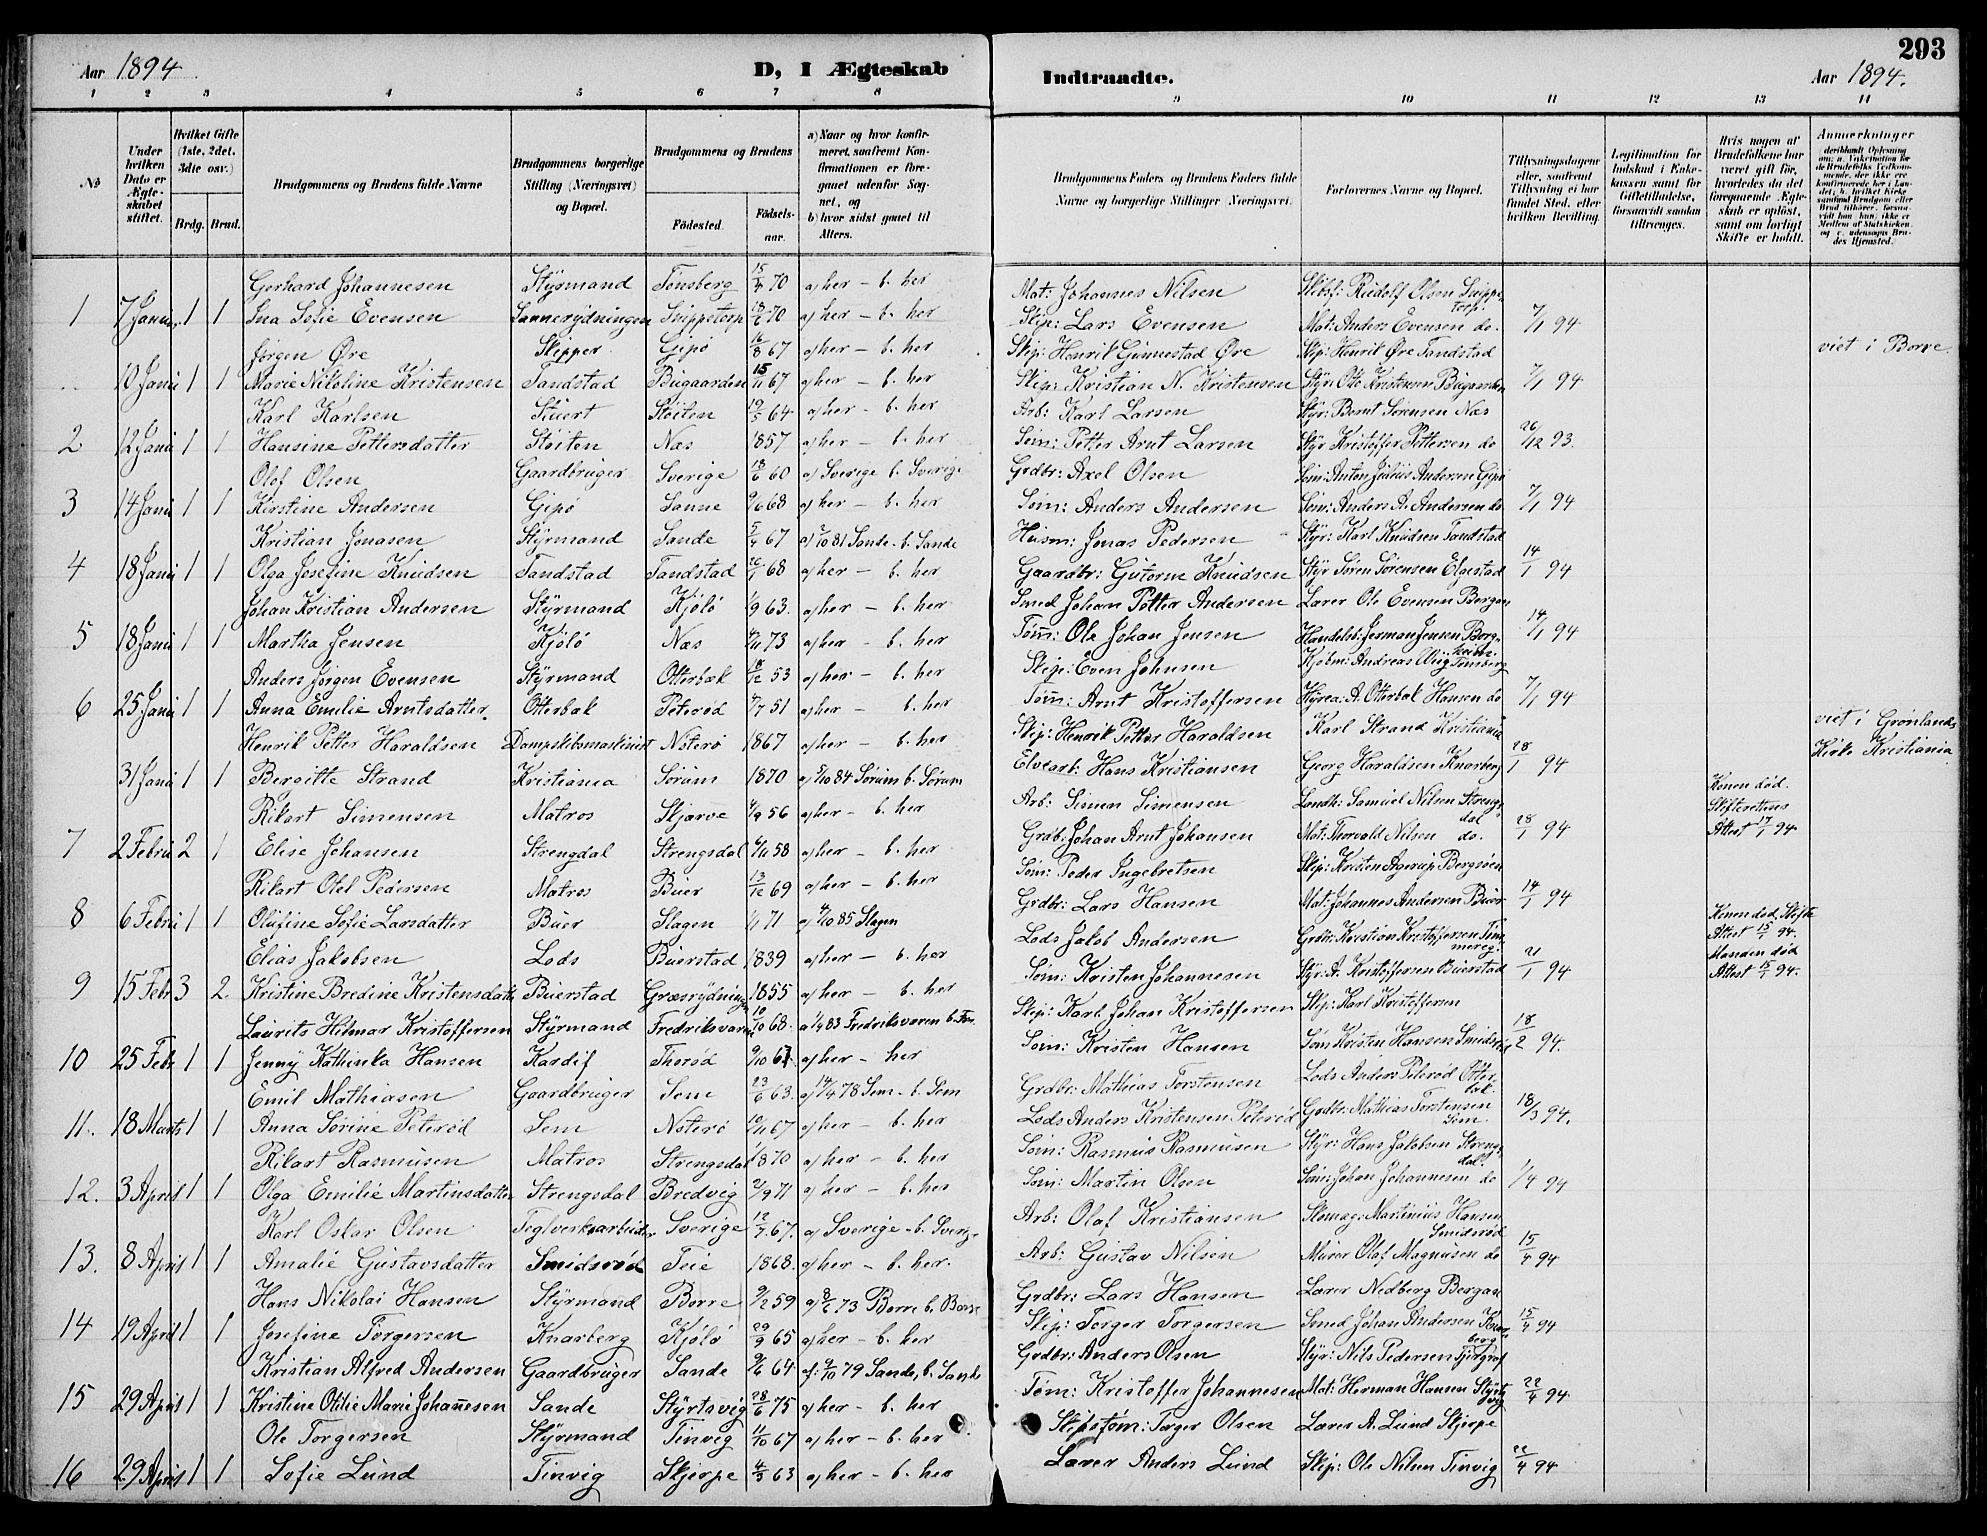 293
Aar 1894. D, I Ægteskab Indtraadte. Aar 1894.
1 2 3 4 5 6 7 8 9 10 11 12 13 14
№
Under hvilken Dato er Ægteskabet stiftet.
Hvilket Gifte (1ste, 2det, 3die osv.)
Brdg. Brud.
Brudgommens og Brudens fulde Navne
Brudgommens borgerlige Stilling (Næringsvei) og Bopæl.
Brudgommens og Brudens
Fødested. Fødselsaar.
a) Naar og hvor konfirmeret, saafremt Konfirmationen er foregaaet udenfor Sognet, og
b) hvor sidst gaaet til Alters.
Brudgommens Faders og Brudens Faders fulde Navne og borgerlige Stillinger Næringsvei.
Forlovernes Navne og Bopæl.
Tillysningsdagene eller, saafremt Tillysning ei har fundet Sted, efter hvilken Bevilling.
Legitimation for Indskud i Enkekassen samt for Giftetilladelse, forsaavidt saadan tiltrænges.
Hvis nogen af Brudefolkene har været gift før, hvorledes da det foregaaende Ægteskab er opløst, samt om lovligt Skifte er holdt.
Anmærkninger
Gerhard Johannesen Styrmand Tønsberg 15/4 70 a) her – b. her Mat: Johannes Nilsen Skibsf: Rudolf Olsen Snippetorp.
1 7 Januar 1 1 Ina Sofie Evensen Sannerydningen Snippetorp 70 a) her – b. her Skip: Lars Evensen Mat: Anders Evensen do. 7/1 94
Jørgen Øre Skipper Gipø 16/8 67 a) her – b. her Skip: Henrik Gunnestad Øre Skip: Henrik Øre Tandstad viet i Borre.
10 Janu 1 1 Marie Nikoline Kristensen Tandstad Bugaarden 15/11 67 a) her – b. her Skip: Kristian N. Kristensen Styr: Otto Kristensen Bugaarden 7/1 94
Karl Karlsen Stuert Støiten 19/5 64 a) her – b. her Arb: Karl Larsen Styr: Bernt Sørensen Næs
2 12 Janu 1 1 Hansine Pettersdatter Støiten Næs 1857 a) her – b. her Søm: Petter Arnt Larsen Styr Kristoffer Pettersen do 26/12 93.
Olof Olsen Gaardbruger Sverige 18/6 60 a) Sverige b. Sverige Grdbr: Axel Olsen Søm: Anton Julius Andersen Gipø
3 14 Janu 1 1 Kirstine Andersen Gipø Sanne 9/6 68 a) her – b. her Søm: Anders Andersen Søm: Anders A. Andersen do 7/1 94
Kristian Jonasen Styrmand Sande 5/4 67 a) 2/10 81 Sande – b. Sande Husm: Jonas Pedersen Styr: Karl Knudsen Tandstad
4 18 Janu 1 1 Olga Josefine Knudsen Tandstad Tandstad 26/1 68 a) her – b. her Gaardbr: Gutorm Knudsen Styr Søren Sørensen Elgestad 14/1 94
Johan Kristian Andersen Styrmand Kjøló 1/9 63. a) her – b. her Smed Johan Petter Andersen Lærer Ole Evensen Bergan
5 18 Janu 1 1 Martha Jensen Kjøló Næs 4/11 73 a) her – b. her Tøm: Ole Johan Jensen Handelsb: Herman Jensen Bergheim. 14/1 94
Anders Jørgen Evensen Styrmand Otterbæk 18/12 53 a) her – b. her Skip: Even Johnsen Kjøbm: Andreas Wiig Tønsberg
6 25 Janu 1 1 Anna Emilie Arntsdatter. Otterbæk Peterød 4/7 51 a) her – b. her Tøm: Arnt Kristoffersen A. Otterbæk Hansen do 7/1 94
Henrik Petter Haraldsen Dampskibsmaskinist Nøterø 1867 a) her – b. her Skip: Henrik Petter Haraldsen Karl Strand Kristiania viet i Grønlands Kirke Kristiania
31 Janu 1 1 Bergitte Strand Kristiania Sørum 1870 a) 5/10 84 Sørum b. Sørum Elvearb: Hans Kristiansen Georg Haraldsen Knarberg 28/1 94
Rikart Simensen Matros Skjærve 4/9 56 a) her – b. her Arb: Simen Simensen Landh: Samuel Nilsen Strengsdal Konen død. Skifterettens Attest 17/1 94.
7 2 Febru 2 1 Elise Johansen Strengdal Strengsdal 4/11 58 a) her – b. her Grdb: Johan Arnt Johansen Mat: Thorvald Nilsen do. 28/1 94
Rikart Otel Pedersen Matros Buer 13/12 69 a) her – b. her Søm: Peder Ingebretsen Skip: Kristen Agerup Bergsøen
8 6 Febru 1 1 Olufine Sofie Larsdatter Buer Slagen 1/1 71 a) 4/10 85 Slagen Grdbr: Lars Hansen Mat: Johannes Andersen Buer 14/1 94
Elias Jakobsen Lods Buerstad 1839 a) her – b. her Lods Jakob Andersen Grdbr: Kristian Kristoffersen Konen død, Skifte Attest 15/1 94.
9 15 Febr 3 2 Kristine Bredine Kristensdatt Buerstad Græsrydningen 1855 a) her – b. her Søm: Kristen Johannesen Styr: A. Kristoffersen Buerstad 21/1 94 Manden død Attest 15/1 94.
Laurits Hilmar Kristoffersen Styrmand Fredriksværn 10/10 68. a 1/4 83 Fredriksværn b. Skip: Karl Johan Kristoffersen Skip: Karl Kristoffersen
10 25 Febr 1 1 Jenny Kathinka Hansen Kardif Thorsø 9/10 67. a) her – her Søm: Kristen Hansen Søm Kristen Hansen Smidsrød 18/2 94.
Emil Mathiasen Gaardbruger Sem 23/6 63. a) 14/4 78 Sem – b. Sem Grdbr: Mathias Torstensen Lods Anders Peterød Otterbæk.
11. 18 Marts 1 1 Anna Sørine Peterød Sem Nøterø 10/11 67 a) her – b. her Lods Anders Kristensen Peterød Grdbr: Mathias Torstensen Sem 18/3 94.
Rikart Rasmusen Matros Strengsdal 1870 a) her – b. her Søm: Rasmus Rasmusen Styr: Hans Jakobsen Strengsdal.
12. 3 April 1 1 Olga Emilie Martinsdatter Strengsdal Bredvig 2/9 71 a) her – b. her Søm: Martin Olsen Søm: Johan Johannesen do 1/4 94
Karl Oskar Olsen Teglverksarbeider Sverige 12/7 67. a) Sverige – b. Sverige Arb: Olaf Kristiansen Skomag: Martinius Hansen Smidsrød
13. 8 April 1 1 Amalie Gustavsdatter Smidsrød Teie 1868. a) her – b. her. Arb: Gustav Nilsen Murer Olaf Magnusen do 15/4 94
Hans Nikolai Hansen Styrmand Borre 9/2 59 a) 8/6 73 Borre b. Borre Grdbr: Lars Hansen Lærer Nedberg Bergan
14 19 April 1 1 Josefine Torgersen Knarberg Kjøló 29/9 65 a) her – b. her Skip: Torger Torgersen Smed Johan Andersen Knarberg 15/4 94
Kristian Alfred Andersen Gaardbruger Sande 9/6 64 a): 9/10 79 Sande, b. Sande Grdbr: Anders Olsen Styr: Nils Pedersen
15 29 April 1 1 Kristine Otilie Marie Johannesen Sande Styrtsvig 28/6 75 a) her – b. her Tøm: Kristoffer Johannesen Mat: Herman Hansen Styrtsvig 22/4 94.
Ole Torgersen Styrmand Tinvig 11/10 67 a) her – b. her Skibstøm: Torger Olsen Lærer A. Lund Skjerpe
16 29 April 1 1 Sofie Lund Tinvig Skjerpe 4/3 63 a) her – b. her Lærer Anders Lund Skip: Ole Nilsen Tinvig 22/4 94